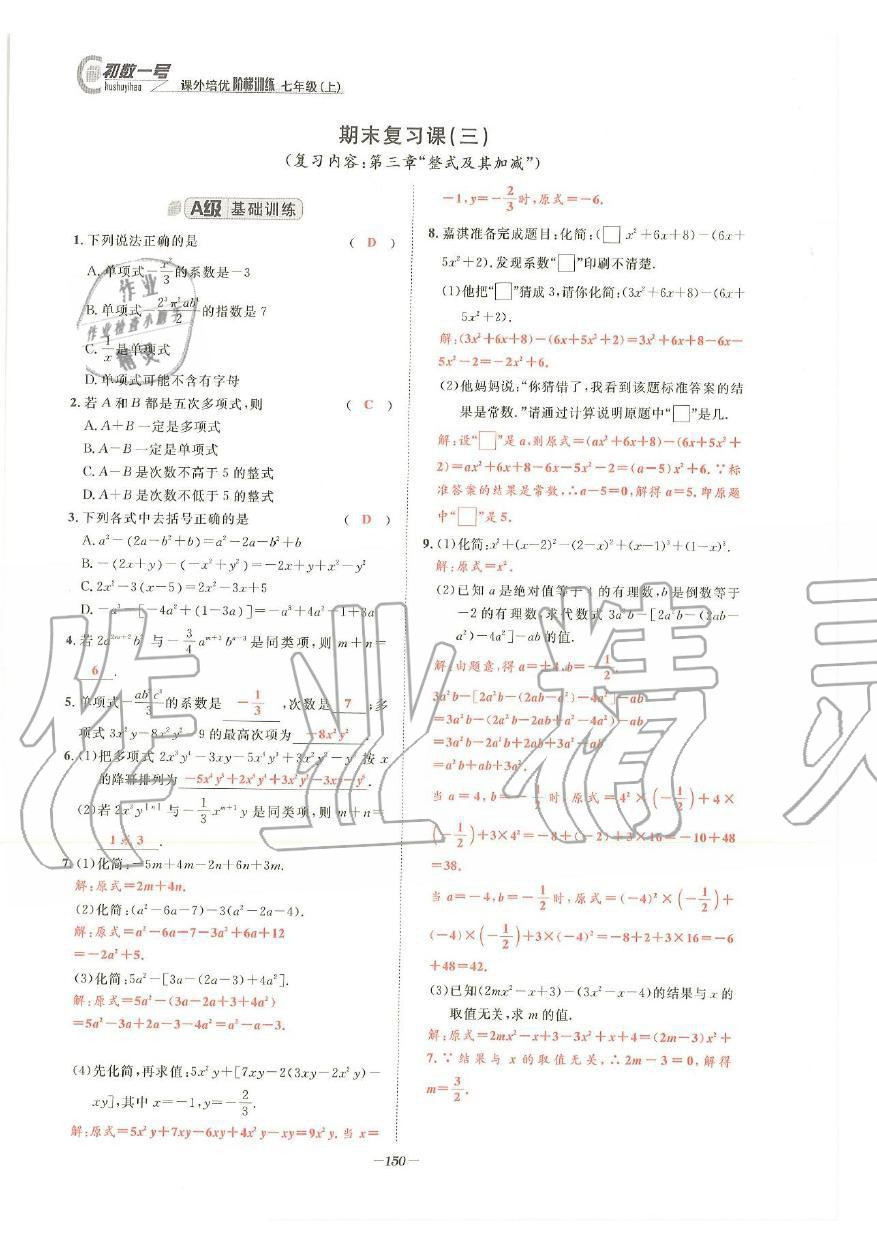 初数一号
chushuyihao
课外培优 阶梯训练 七年级(上)
期末复习课(三)
(复习内容:第三章“整式及其加减”)
A级 基础训练
1. 下列说法正确的是 ( D )
A. 单项式-x²/3的系数是-3
B. 单项式 2³π²ab⁴/2 的指数是7
C. 1/x是单项式
D. 单项式可能不含有字母
2. 若A和B都是五次多项式,则 ( C )
A. A+B一定是多项式
B. A-B一定是单项式
C. A-B是次数不高于5的整式
D. A+B是次数不低于5的整式
3. 下列各式中去括号正确的是 ( D )
A. a²-(2a-b²+b)=a²-2a-b²+b
B. -(2x+y)-(-x²+y²)=-2x+y+x²-y²
C. 2x²-3(x-5)=2x²-3x+5
D. -a³-[-4a²+(1-3a)]=-a³+4a²-1+3a
4. 若 2a²ᵐ⁺²b² 与 -3/4 aᵐ⁺³bⁿ⁻³ 是同类项,则 m+n=
6 .
5. 单项式-ab³c³/3 的系数是 -1/3 ,次数是 7 ;多
项式 3x²y-8x²y²-9的最高次项为 -8x²y² .
6. (1)把多项式 2x³y⁴-3xy-5x⁴y³+3x²y²-y⁵ 按x
的降幂排列为 -5x⁴y³+2x³y⁴+3x²y²-3xy-y⁵ .
(2)若 2x³y|ⁿ| 与 -1/3 xᵐ⁺¹y 是同类项,则 m+n=
1或3 .
7. (1)化简:-5m+4m-2n+6n+3m.
解:原式=2m+4n.
(2)化简:(a²-6a-7)-3(a²-2a-4).
解:原式=a²-6a-7-3a²+6a+12
=-2a²+5.
(3)化简:5a²-[3a-(2a-3)+4a²].
解:原式=5a²-(3a-2a+3+4a²)
=5a²-3a+2a-3-4a²=a²-a-3.
(4)先化简,再求值:5x²y+[7xy-2(3xy-2x²y)-
xy],其中 x=-1,y=-2/3.
解:原式=5x²y+7xy-6xy+4x²y-xy=9x²y.当 x=
-1,y=-2/3时,原式=-6.
8. 嘉淇准备完成题目:化简:(□x²+6x+8)-(6x+
5x²+2). 发现系数“□”印刷不清楚.
(1)他把“□”猜成3,请你化简:(3x²+6x+8)-(6x+
5x²+2).
解:(3x²+6x+8)-(6x+5x²+2)=3x²+6x+8-6x-
5x²-2=-2x²+6.
(2)他妈妈说:“你猜错了,我看到该题标准答案的结
果是常数.”请通过计算说明原题中“□”是几.
解:设“□”是a,则原式=(ax²+6x+8)-(6x+5x²+
2)=ax²+6x+8-6x-5x²-2=(a-5)x²+6.∵标
准答案的结果是常数,∴a-5=0,解得a=5.即原题
中“□”是5.
9. (1)化简:x²+(x-2)²-(2-x)²+(x-1)³+(1-x)³.
解:原式=x².
(2)已知a是绝对值等于4的有理数,b是倒数等于
-2的有理数,求代数式 3a²b-[2a²b-(2ab-
a²)-4a²]-ab的值.
解:由题意,得 a=±4,b=-1/2.
3a²b-[2a²b-(2ab-a²)-4a²]-ab
=3a²b-(2a²b-2ab+a²-4a²)-ab
=3a²b-2a²b+2ab+3a²-ab
=a²b+ab+3a².
当 a=4,b=-1/2时,原式=4²×(-1/2)+4×
(-1/2)+3×4²=-8+(-2)+3×16=-10+48
=38.
当 a=-4,b=-1/2时,原式=(-4)²×(-1/2)+
(-4)×(-1/2)+3×(-4)²=-8+2+3×16=-6
+48=42.
(3)已知(2mx²-x+3)-(3x²-x-4)的结果与x的
取值无关,求m的值.
解:原式=2mx²-x+3-3x²+x+4=(2m-3)x²+
7.∵结果与 x 的取值无关,∴2m-3=0,解得
m=3/2.
—150—
作业
作业检查小助手
精灵
作业精灵